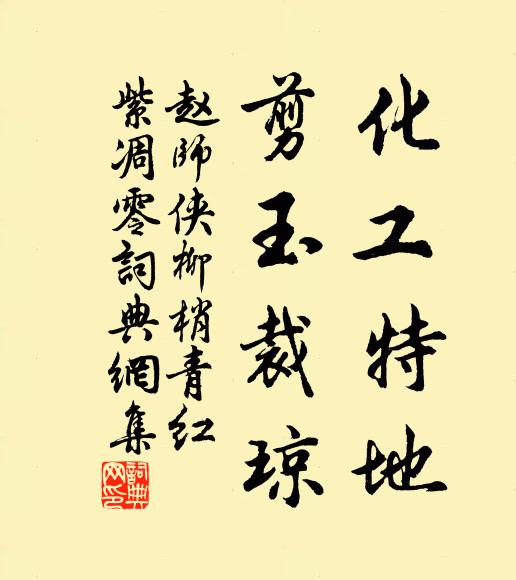 化工特地
剪玉裁琼
赵师侠柳梢青红
紫凋零詞典網集
詞典网印